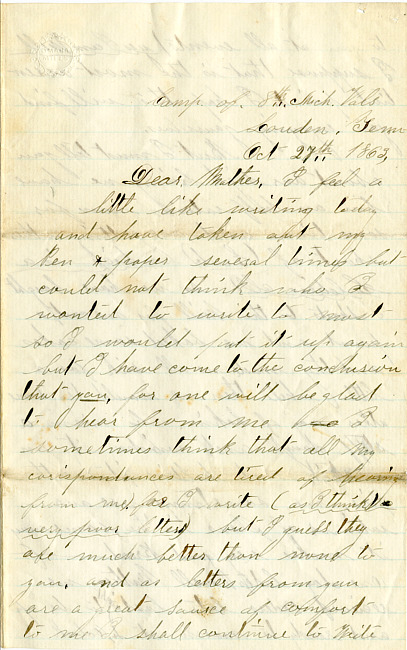 Camp of 8th. Mich. Vols
Louden, Tenn
Oct 27th. 1863,
Dear, Mother, I feel a
little like writing today
and have taken out my
Pen & paper several times but
could not think who I
wanted to write to most
so I would put it up again
but I have come to the conclusion
that you, for one will be glad
to hear from me I
sometimes think that all my
corispondances are tired of hearing
from me, for I write (as I think)
very poor letters) but I guess they
are much better than none to
you, and as letters from you
are a great sauce of comfort
to me I shall continue to write